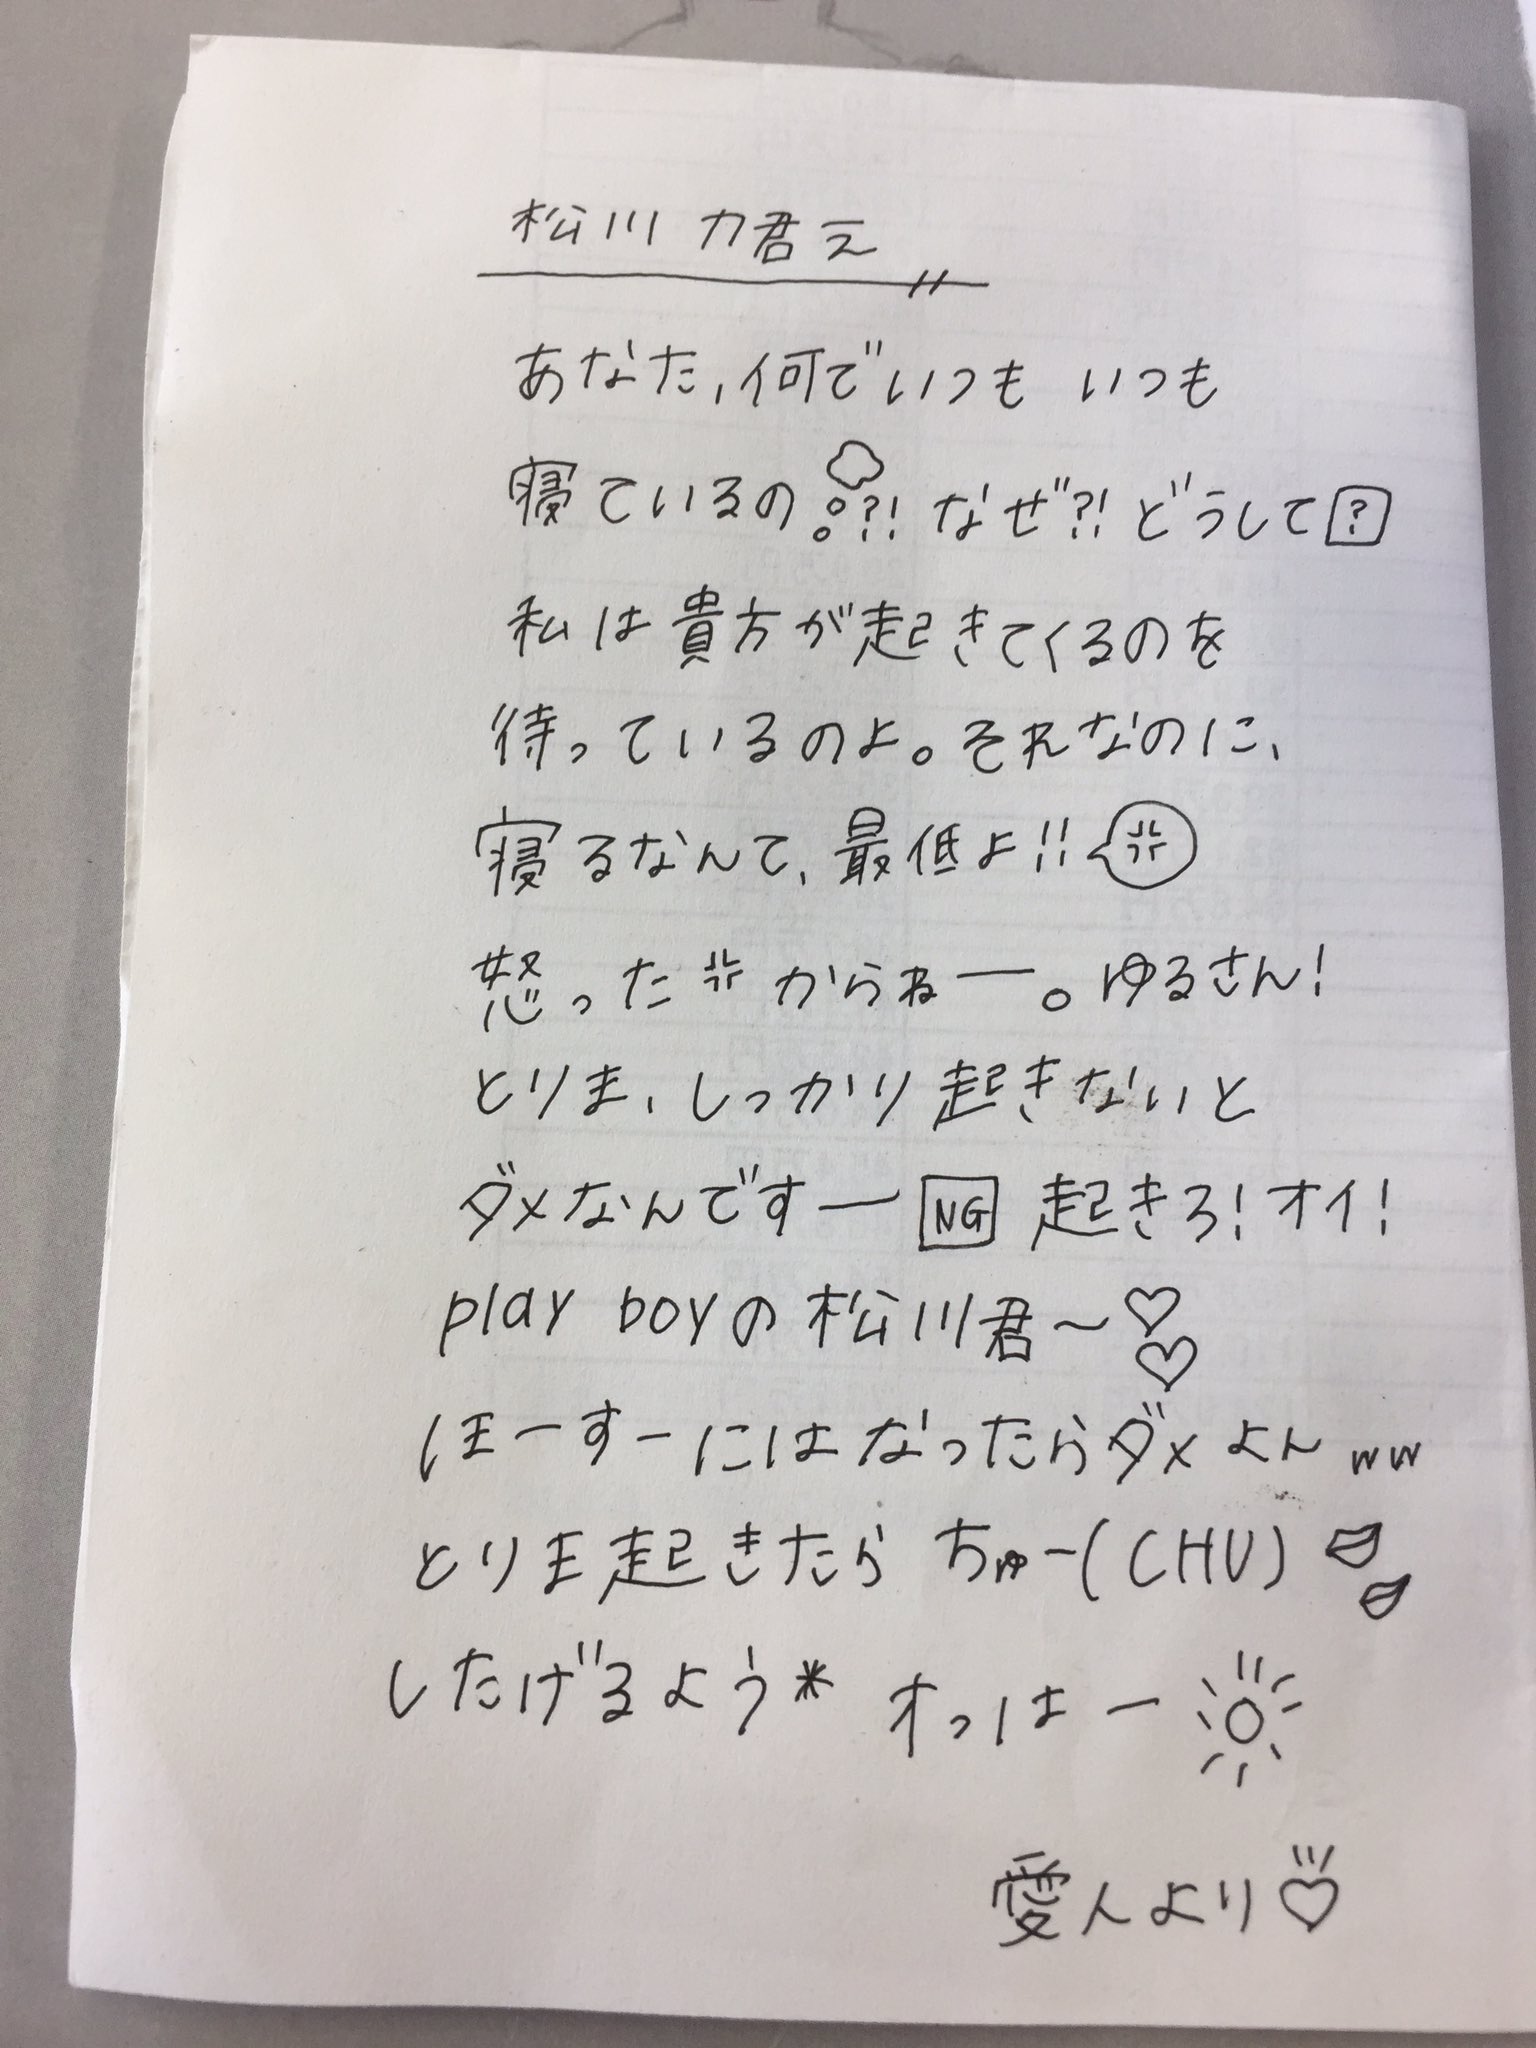 松川 力君え
あなた、何でいつも いつも
寝ているの?! なぜ?! どうして?
私は貴方が起きてくるのを
待っているのよ。それなのに、
寝るなんて、最低よ!!
怒った からねー。ゆるさん!
とりま、しっかり起きないと
ダメなんですー NG 起きろ!オイ!
play boyの松川君〜♡♡
ほーすーにはなったらダメよんww
とりま起きたら ちゅー(CHU)
したげるよう* オっはー
愛人より♡